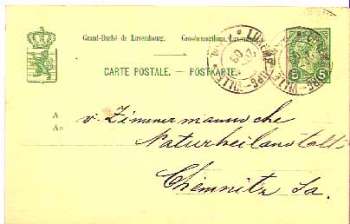 Grand-Duché de Luxembourg. Grossherzogthum Luxemburg.
CARTE POSTALE. — POSTKARTE.
5 5
LUXEMBURG-VILLE
A
An
v. Zimmermannsche
Naturheilanstalt
Chemnitz Sa.